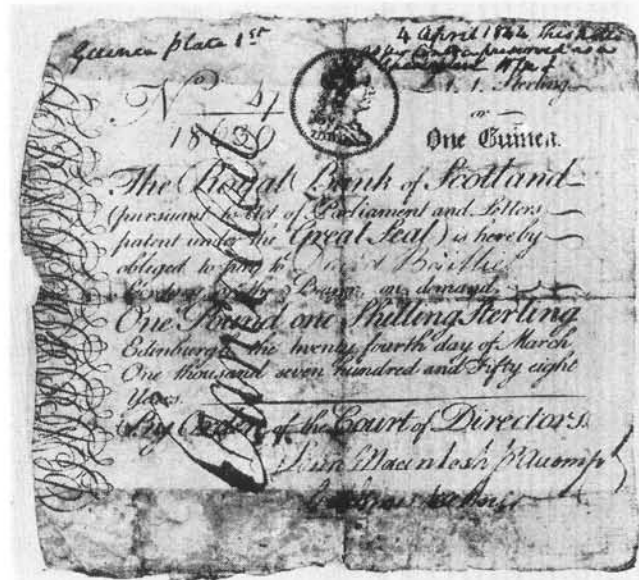 Guinea plate 1st
4 April 1844 This Note
preserved as a
Specimen
No 4/
£1. 1. Sterling
or
18
One Guinea.
The Royal Bank of Scotland
(pursuant to Act of Parliament and Letters
patent under the Great Seal) is hereby
obliged to pay to David Baillie
or the Bearer, on demand
One Pound one Shilling Sterling
Edinburgh the twenty fourth day of March
One thousand seven hundred and Fifty eight
Years.
By Order of the Court of Directors
Cancelled
John Macintosh p Accompt